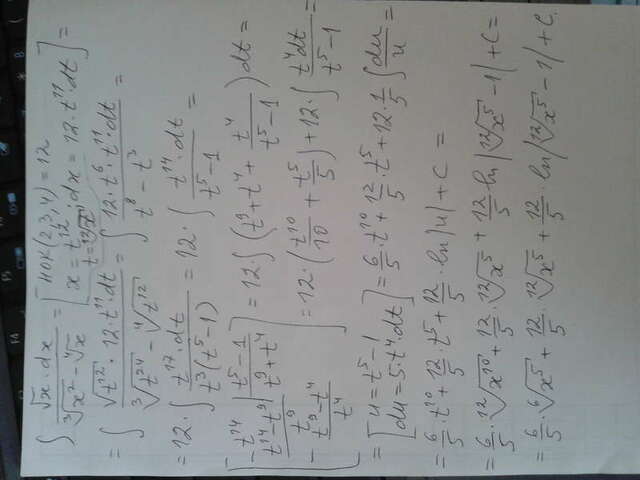 ∫ √x·dx / (∛x² − ⁴√x) = [НОК(2,3,4)=12; x=t¹²; dx=12·t¹¹·dt; t=¹²√x] =
= ∫ √t¹²·12·t¹¹·dt / (∛t²⁴ − ⁴√t¹²) = ∫ 12·t⁶·t¹¹·dt / (t⁸ − t³) =
= 12·∫ t¹⁷·dt / (t³(t⁵−1)) = 12·∫ t¹⁴·dt / (t⁵−1) =
[ −t¹⁴ | t⁵−1
t¹⁴−t⁹ | t⁹+t⁴
− t⁹
t⁹−t⁴
t⁴ ] = 12∫(t⁹+t⁴+ t⁴/(t⁵−1))dt =
= 12·(t¹⁰/10 + t⁵/5) + 12·∫ t⁴dt/(t⁵−1) =
= [u=t⁵−1; du=5·t⁴·dt] = 6/5·t¹⁰ + 12/5·t⁵ + 12·1/5 ∫ du/u =
= 6/5·t¹⁰ + 12/5·t⁵ + 12/5·ln|u| + C =
= 6/5·¹²√x¹⁰ + 12/5·¹²√x⁵ + 12/5·ln|¹²√x⁵ − 1| + C =
= 6/5·⁶√x⁵ + 12/5·¹²√x⁵ + 12/5·ln|¹²√x⁵ − 1| + C.